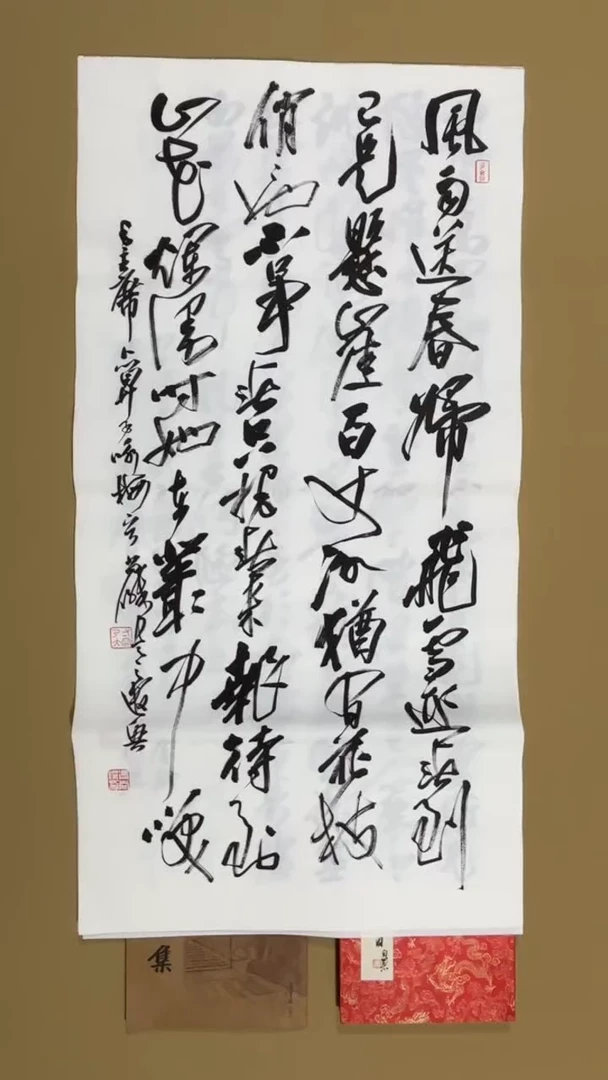 風雨送春歸飛雪迎春到
已是懸崖百丈冰猶有花枝
俏〻也不爭春只把春來報待到
山花爛漫時她在叢中笑
毛主席卜算子咏梅
集